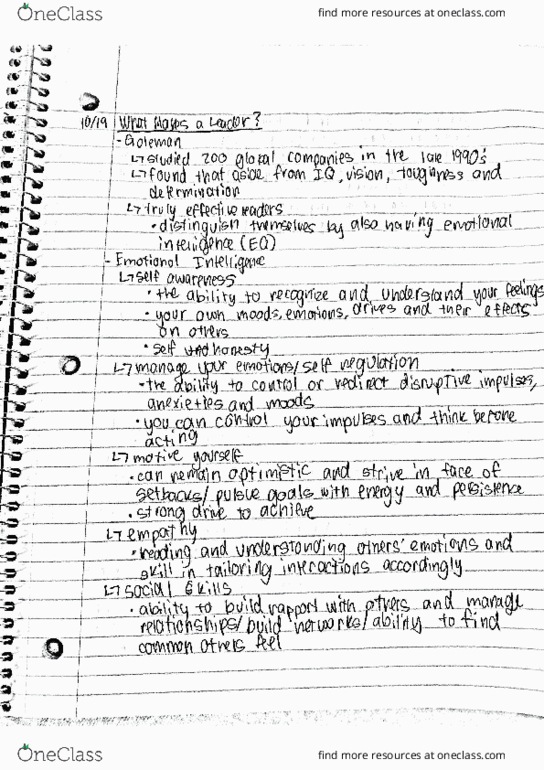 OneClass
find more resources at oneclass.com
10/19 What Makes a Leader?
- Goleman
↳ studied 200 global companies in the late 1990's
↳ found that aside from IQ, vision, toughness and
determination
↳ truly effective leaders
• distinguish themselves by also having emotional
intelligence (EQ)
- Emotional Intelligence
↳ self awareness
• the ability to recognize and understand your feelings
• your own moods, emotions, drives and their effects
on others
• self honesty
↳ manage your emotions/self regulation
• the ability to control or redirect disruptive impulses,
anexieties and moods
• you can control your impulses and think before
acting
↳ motive yourself
• can remain optimistic and strive in face of
setbacks/ pursue goals with energy and persistence
• strong drive to achieve
↳ empathy
• reading and understanding others' emotions and
skill in tailoring interactions accordingly
↳ social skills
• ability to build rapport with others and manage
relationships/build networks/ability to find
common others feel
OneClass
find more resources at oneclass.com